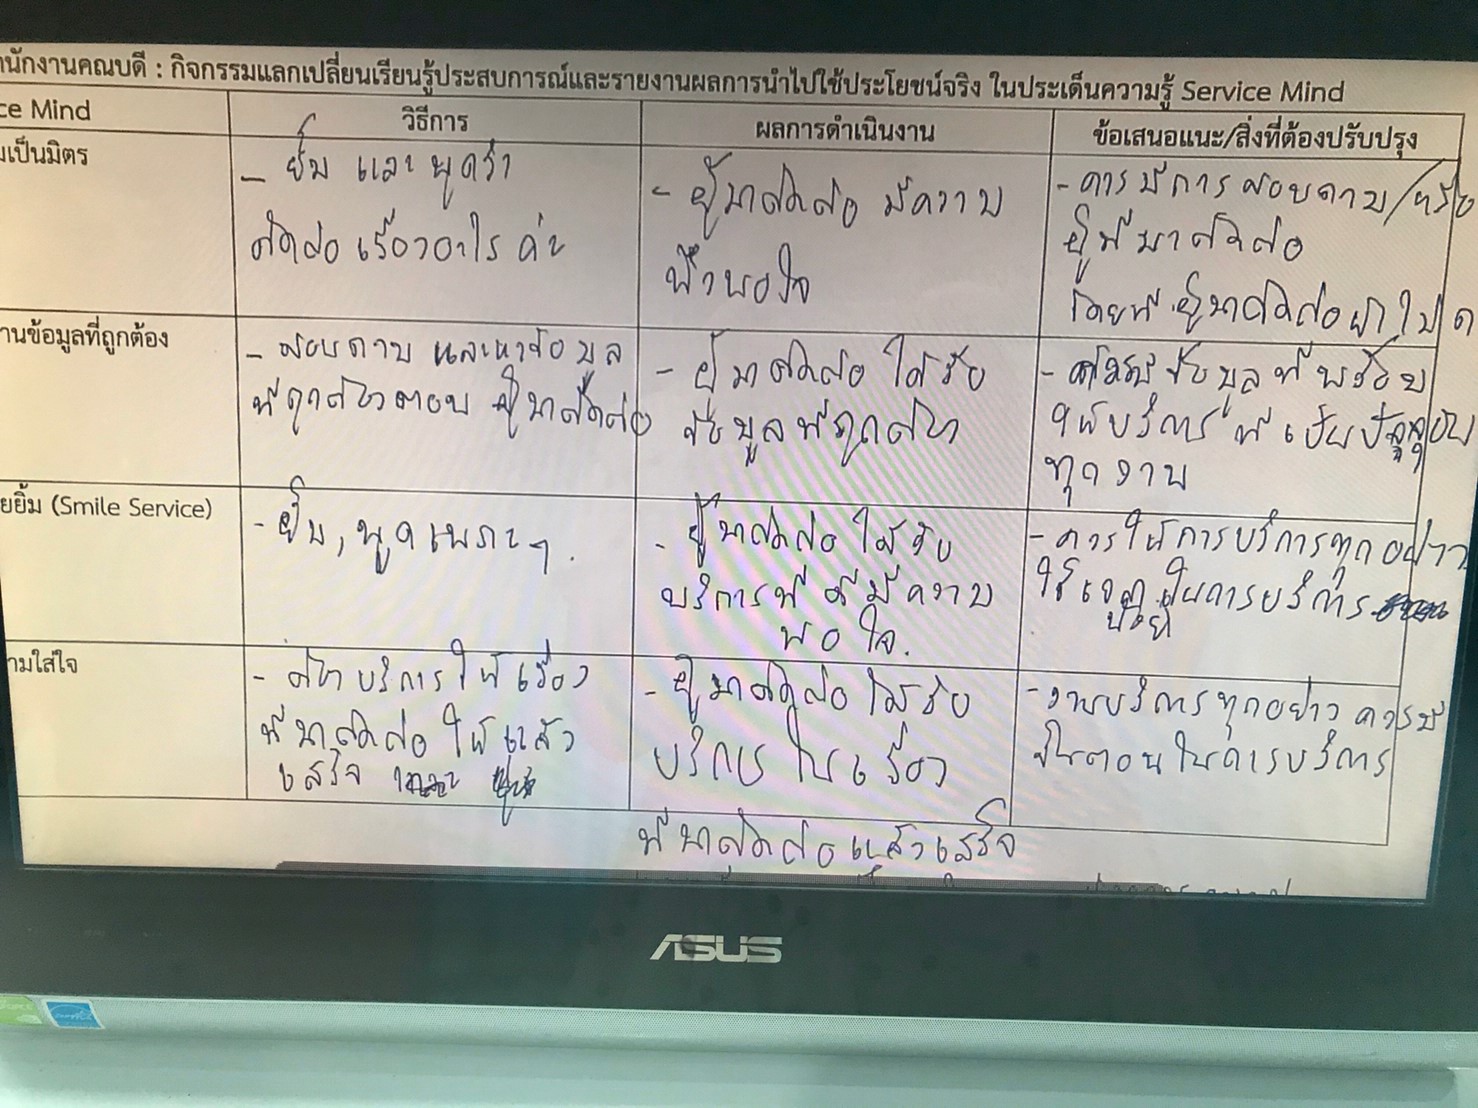 นักงานคณบดี : กิจกรรมแลกเปลี่ยนเรียนรู้ประสบการณ์และรายงานผลการนำไปใช้ประโยชน์จริง ในประเด็นความรู้ Service Mind
ce Mind
วิธีการ
ผลการดำเนินงาน
ข้อเสนอแนะ/สิ่งที่ต้องปรับปรุง
เป็นมิตร
- ยิ้ม และ พูดว่า
ติดต่อ เรื่องอะไร ค่ะ
- ผู้มาติดต่อ มีความ
พึงพอใจ
- ควรมีการสอบถาม/
ผู้ที่มาติดต่อ
โดยที่ ผู้มาติดต่อ
านข้อมูลที่ถูกต้อง
- สอบถาม และหาข้อมูล
ที่ถูกต้องตอบ ผู้มาติดต่อ
- ผู้มาติดต่อ ได้รับ
ข้อมูลที่ถูกต้อง
- ข้อมูลที่พร้อม
ให้บริการ ที่เป็นปัจจุบัน
ทุกงาน
ยยิ้ม (Smile Service)
- ยิ้ม, พูดเพราะๆ.
- ผู้มาติดต่อ ได้รับ
บริการที่ ดี มีความ
พอใจ.
- ควรให้การบริการทุกอย่าง
ในการบริการ
ามใส่ใจ
- บริการให้เรื่อง
ที่มาติดต่อ ให้แล้ว
เสร็จ
- ผู้มาติดต่อ ได้รับ
บริการ ในเรื่อง
ที่มาติดต่อแล้วเสร็จ
- งานบริการทุกอย่าง ควรมี
ขั้นตอนในการบริการ
ASUS